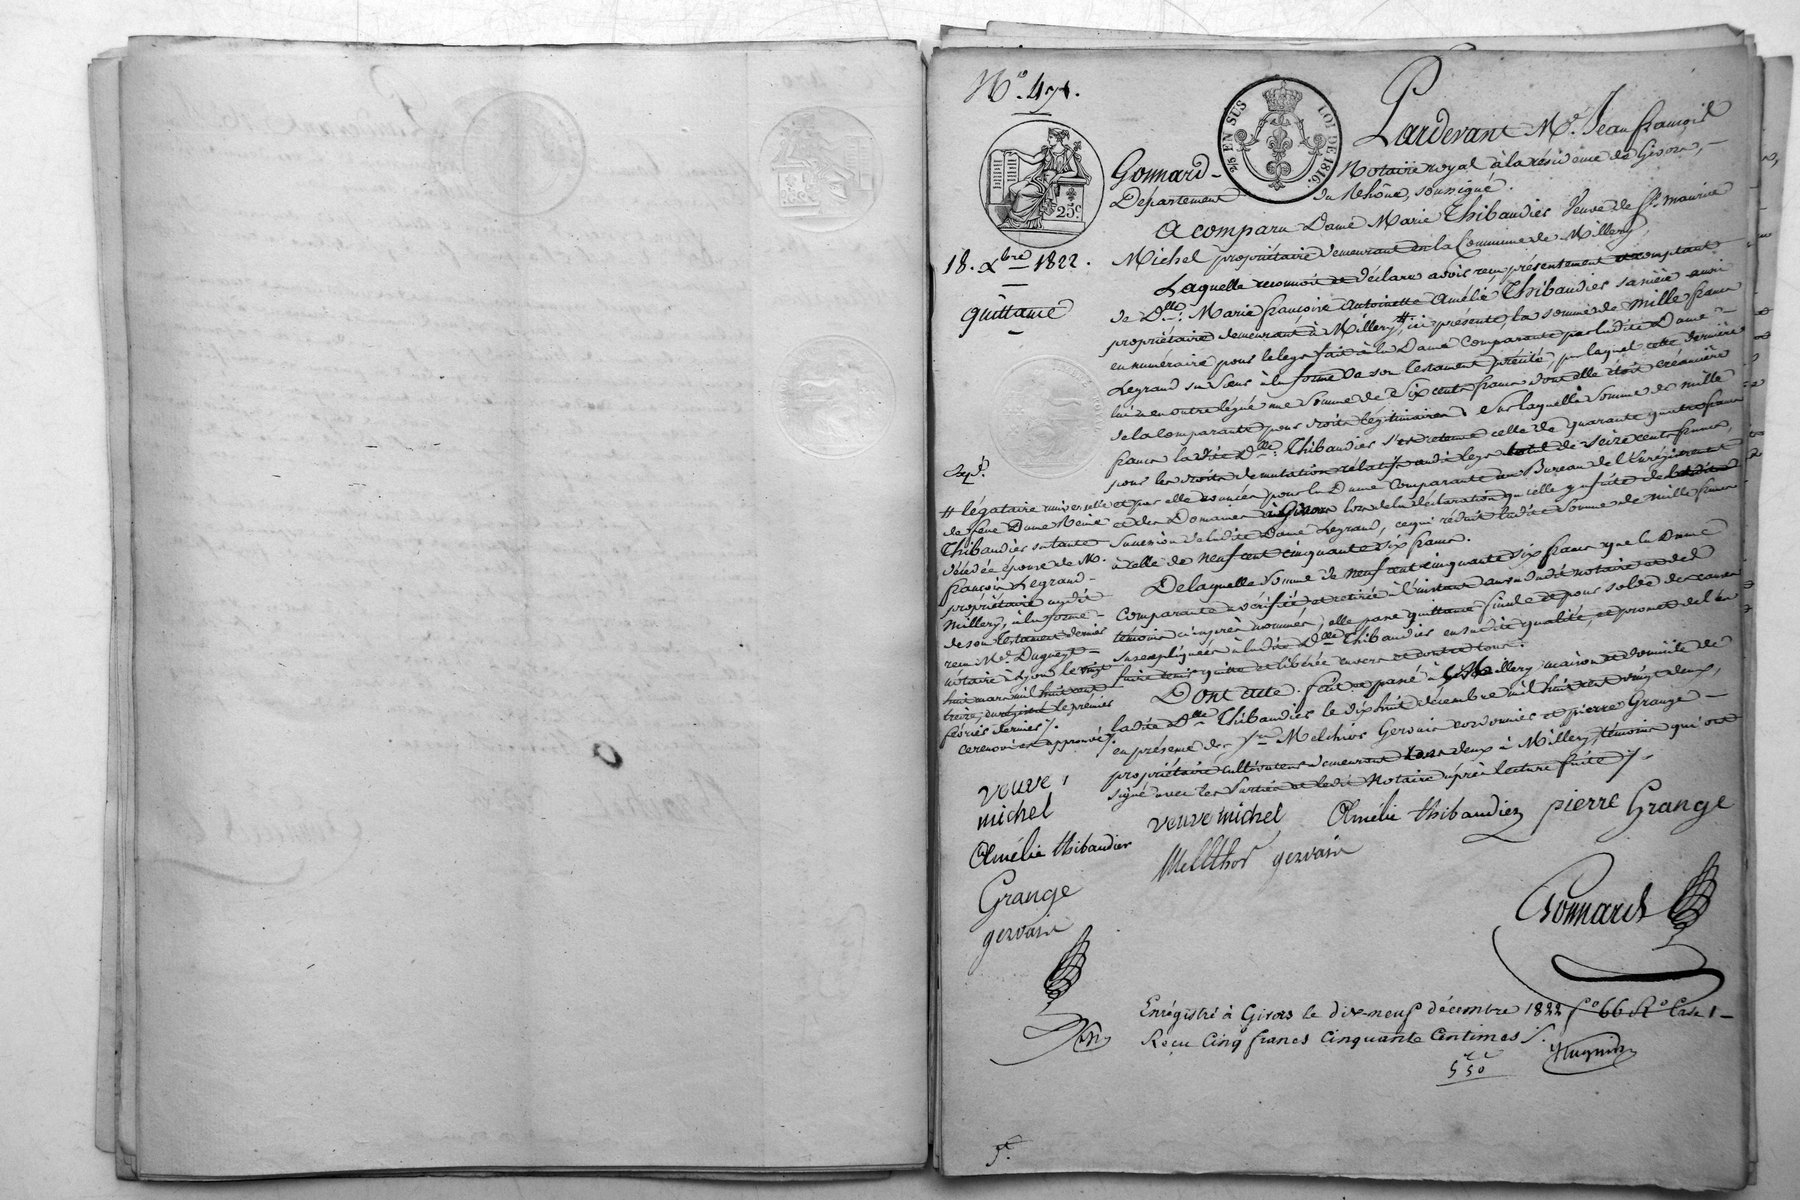 N.o 471.
2/6 EN SUS LOI DE 1816.
25c
Pardevant M.e Jean françois
Gonnard - Notaire royal à la résidence de Givors, -
Département du Rhône, soussigné.
18. Xbre 1822.
quittance
A comparu Dame Marie Thibaudier Veuve de Sr. maurice
Michel propriétaire demeurant en la Commune de Millery,
Laquelle reconnoit et déclare avoir reçu présentement et comptant
de Dlle. Marie françoise Antoinette Amélie Thibaudier sa nièce aussi
propriétaire demeurant à Millery, # ici présente, la somme de Mille francs
en numéraire pour le legs fait à la Dame Comparante par ladite Dame -
Legrand sa sœur à la forme de son testament précité, par lequel cette dernière
lui a en outre légué une Somme de Six cents francs dont elle étoit créancière
de la comparante pour droits légitimaires. Sur laquelle Somme de mille
francs la dite Dlle. Thibaudier s'est retenue celle de quarante quatre francs
pour les droits de mutation rélatifs audit legs total de seize cents francs,
et par elle avancés pour la Dame Comparante au Bureau de l'Enregistrement
et des Domaines à Givors lors de la déclaration qu'elle y a faite de la
Succession de ladite Dame Legrand, ce qui réduit ladite Somme de Mille francs
à celle de neuf cent cinquante six francs.
De laquelle Somme de neuf cent cinquante six francs que la Dame
Comparante a vérifiée et retirée à l'instant au vu dudit notaire et des
témoins ci après nommés, elle passe quittance finale et pour solde des causes
susexpliquées à ladite Dlle Thibaudier en sa dite qualité, et promet de l'en
faire tenir quitte et libérée envers et contre tous.
Dont acte. fait et passé à Millery maison et domicile de
ladite Dlle Thibaudier le dix huit décembre mil huit cent vingt deux,
en présence des Srs Melchior Gervais cordonnier et pierre Grange -
propriétaire cultivateur demeurant tous deux à Millery, témoins qui ont
signé avec les Parties et ledit Notaire après lecture faite ./.
Expd.
# légataire universelle
de feue Dame Reine
Thibaudier sa tante
décédée épouse de M.
françois Legrand -
propriétaire audit
Millery, à la forme -
de son testament dernier
reçu Me. Dugueyt -
notaire à Lyon le vingt
huit mars mil huit cent
treize, enregistré le premier
février dernier ./.
ce renvoi est approuvé ./.
veuve
michel
Amélie thibaudier
Grange
gervais
veuve michel Amélie thibaudier pierre Grange
Mellthor gervais
Gonnard
Enrégistré à Givors le dix-neuf décembre 1822 fo 66 Ro Case 1 -
Reçu Cinq francs Cinquante Centimes ./.
5 50